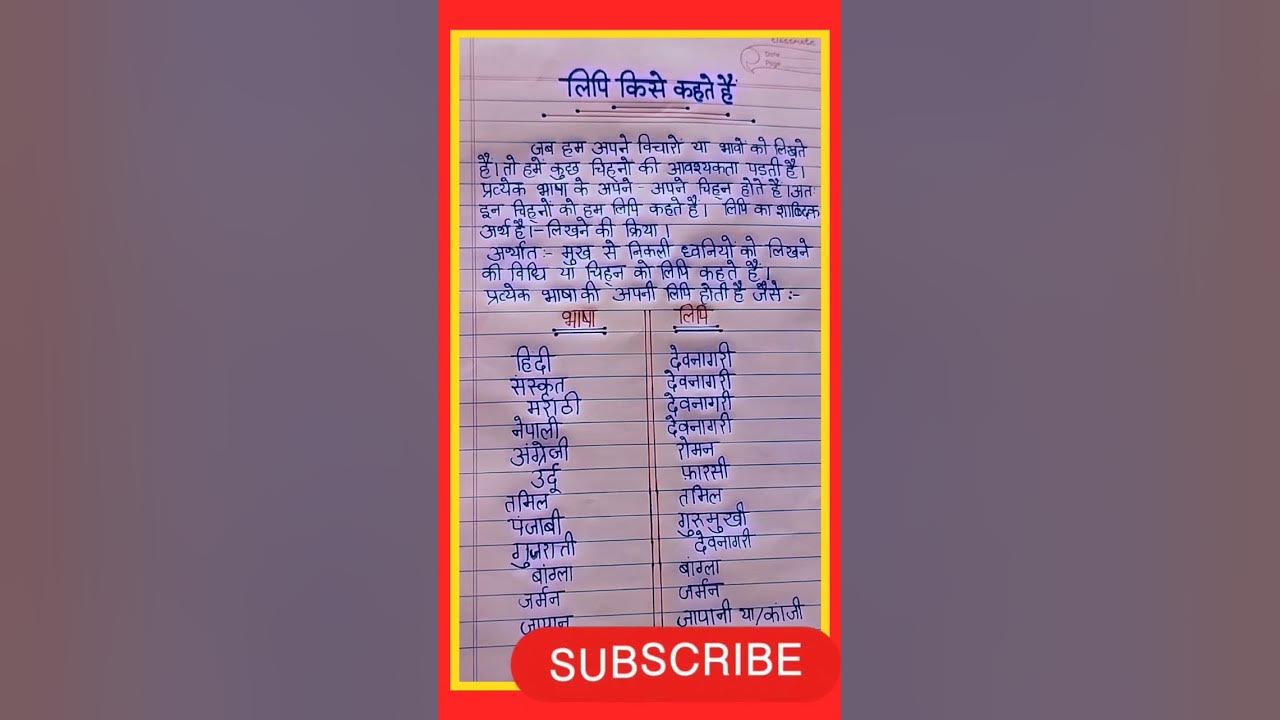 classmate
Date
Page
लिपि किसे कहते हैं
जब हम अपने विचारों या भावों को लिखते
हैं। तो हमें कुछ चिह्नों की आवश्यकता पडती है।
प्रत्येक भाषा के अपने - अपने चिह्न होते हैं।अतः
इन चिह्नों को हम लिपि कहते हैं। लिपि का शाब्दिक
अर्थ है।-लिखने की क्रिया।
अर्थात :- मुख से निकली ध्वनियों को लिखने
की विधि या चिह्न को लिपि कहते हैं।
प्रत्येक भाषा की अपनी लिपि होती है जैसे :-
भाषा लिपि
हिंदी देवनागरी
संस्कृत देवनागरी
मराठी देवनागरी
नेपाली देवनागरी
अंग्रेजी रोमन
उर्दू फ़ारसी
तमिल तमिल
पंजाबी गुरुमुखी
गुजराती देवनागरी
बांग्ला बांग्ला
जर्मन जर्मन
जापान जापानी या/कांजी
SUBSCRIBE